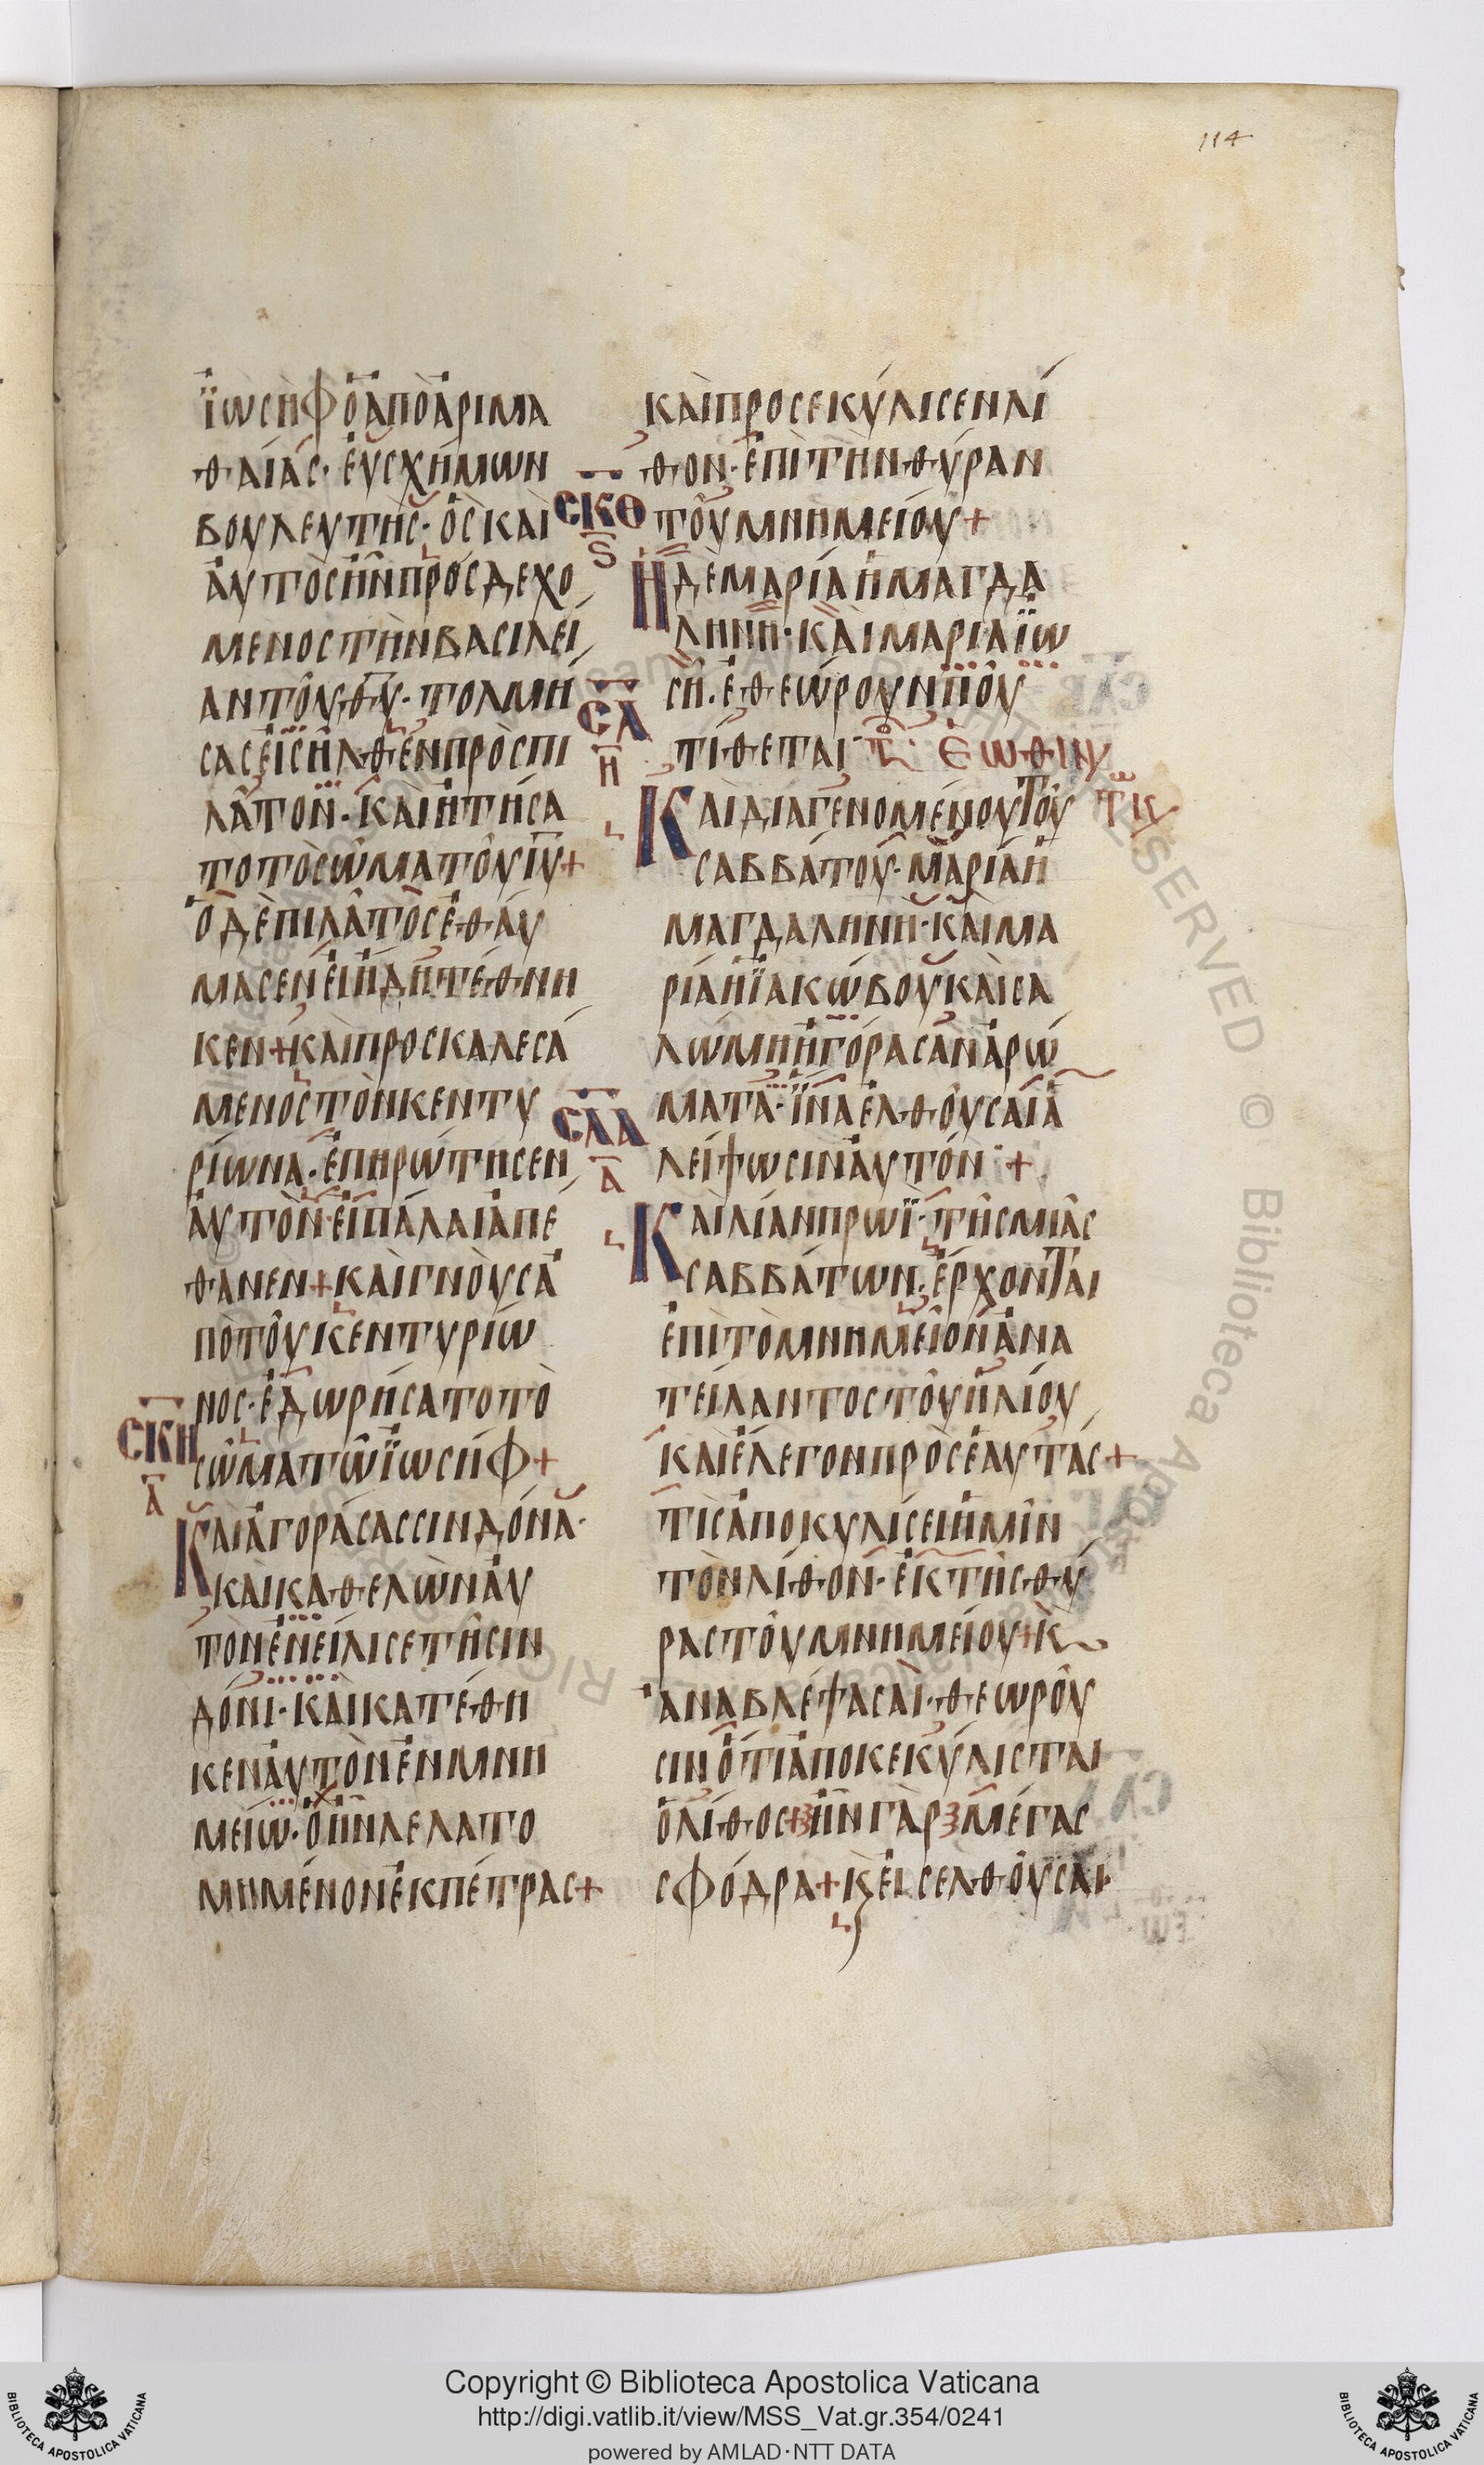 114
ἸΩΣῊΦ Ὁ ἈΠΟ ἈΡΙΜΑ
ΘΑΊΑΣ· ἘΥΣΧΉΜΩΝ
ΒΟΥΛΕΥΤῊΣ· ὋΣ ΚΑῚ
ἈΥΤῸΣ ἮΝ ΠΡΟΣΔΕΧΌ
ΜΕΝΟΣ ΤῊΝ ΒΑΣΙΛΕΊ
ΑΝ ΤΟῦ ΘΥ· ΤΟΛΜΉ
ΣΑΣ ἘΙΣΗΛΘΕΝ ΠΡῸΣ ΠΙ
ΛΑΤΟΝ· ΚΑῚ ἨΤΉΣΑ
ΤΟ ΤῸ ΣῶΜΑ ΤΟῦ ΙΥ+
Ὁ ΔῈ ΠΙΛΑΤΟΣ ἘΘΑΎ
ΜΑΣΕΝ ἘΙ ἬΔΗ ΤΈΘΝΗ
ΚΕΝ+ ΚΑῚ ΠΡΟΣΚΑΛΕΣΆ
ΜΕΝΟΣ ΤῸΝ ΚΕΝΤΥ
ΡΊΩΝΑ· ἘΠΗΡΏΤΗΣΕΝ
ἈΥΤῸΝ· ἘΙ ΠΆΛΑΙ ἈΠΈ
ΘΑΝΕΝ+ ΚΑῚ ΓΝΟῪΣ Ἀ
ΠῸ ΤΟῦ ΚΕΝΤΥΡΊΩ
ΝΟΣ· ἘΔΩΡΉΣΑΤΟ ΤῸ
ΣῶΜΑ Τῶ ἸΩΣΉΦ+
ΣΚΗ
Α
ΚΑῚ ἈΓΟΡΆΣΑΣ ΣΙΝΔΌΝΑ·
ΚΑῚ ΚΑΘΕΛῺΝ ἈΥ
ΤῸΝ ἘΝΕΊΛΙΣΕ ΤΗ ΣΙΝ
ΔΌΝΙ· ΚΑῚ ΚΑΤΈΘΗ
ΚΕΝ ἈΥΤῸΝ ἘΝ ΜΝΗ
ΜΕΊΩ· Ὃ ἮΝ ΛΕΛΑΤΟ
ΜΗΜΈΝΟΝ ἘΚ ΠΈΤΡΑΣ+
ΚΑῚ ΠΡΟΣΕΚΎΛΙΣΕΝ ΛΊ
ΘΟΝ· ἘΠῚ ΤῊΝ ΘΎΡΑΝ
ΣΚΘ
Ϛ
ΤΟῦ ΜΝΗΜΕΊΟΥ+
Ἡ ΔῈ ΜΑΡΊΑ Ἡ ΜΑΓΔΑ
ΛΗΝῊ· ΚΑῚ ΜΑΡΊΑ ἸΩ
ΣΗ· ἘΘΕΏΡΟΥΝ ΠΟῦ
ΣΛ
Η
ΤΊΘΕΤΑΙ ΤΛ ΕΩΘΙΝ
ΚΑῚ ΔΙΑΓΕΝΟΜΈΝΟΥ ΤΟῦ ΤΩ ΚΥ
ΣΑΒΒΆΤΟΥ· ΜΑΡΊΑ Ἡ
ΜΑΓΔΑΛΗΝῊ· ΚΑῚ ΜΑ
ΡΊΑ Ἡ ἸΑΚΏΒΟΥ ΚΑῚ ΣΑ
ΛΏΜΗ ἨΓΌΡΑΣΑΝ ἈΡΏ
ΜΑΤΑ· ἽΝΑ ἘΛΘΟῦΣΑΙ Ἀ
ΣΛΑ
Α
ΛΕΊΨΩΣΙΝ ἈΥΤΌΝ +
ΚΑῚ ΛΊΑΝ ΠΡΩΪ· ΤΗΣ ΜΙΑΣ
ΣΑΒΒΆΤΩΝ· ἘΡΧΟΝΤΑΙ
ἘΠῚ ΤῸ ΜΝΗΜΕΙΟΝ ἈΝΑ
ΤΕΊΛΑΝΤΟΣ ΤΟῦ ἩΛΊΟΥ
ΚΑῚ ἜΛΕΓΟΝ ΠΡῸΣ ἙΑΥΤΆΣ+
ΤΊΣ ἈΠΟΚΥΛΊΣΕΙ ἩΜΙΝ
ΤῸΝ ΛΊΘΟΝ· ἘΚ ΤΗΣ ΘΎ
ΡΑΣ ΤΟῦ ΜΝΗΜΕΊΟΥ+ Κ
ἈΝΑΒΛΈΨΑΣΑΙ· ΘΕΩΡΟῦ
ΣΙΝ ὍΤΙ ἈΠΟΚΕΚΎΛΙΣΤΑΙ
Ὁ ΛΊΘΟΣ+ ἮΝ ΓᾺΡ ΜΈΓΑΣ
ΣΦΌΔΡΑ+ Κ ἘΙΣΕΛΘΟῦΣΑΙ
Copyright © Biblioteca Apostolica Vaticana
http://digi.vatlib.it/view/MSS_Vat.gr.354/0241
powered by AMLAD·NTT DATA
BIBLIOTECA APOSTOLICA VATICANA
BIBLIOTECA APOSTOLICA VATICANA